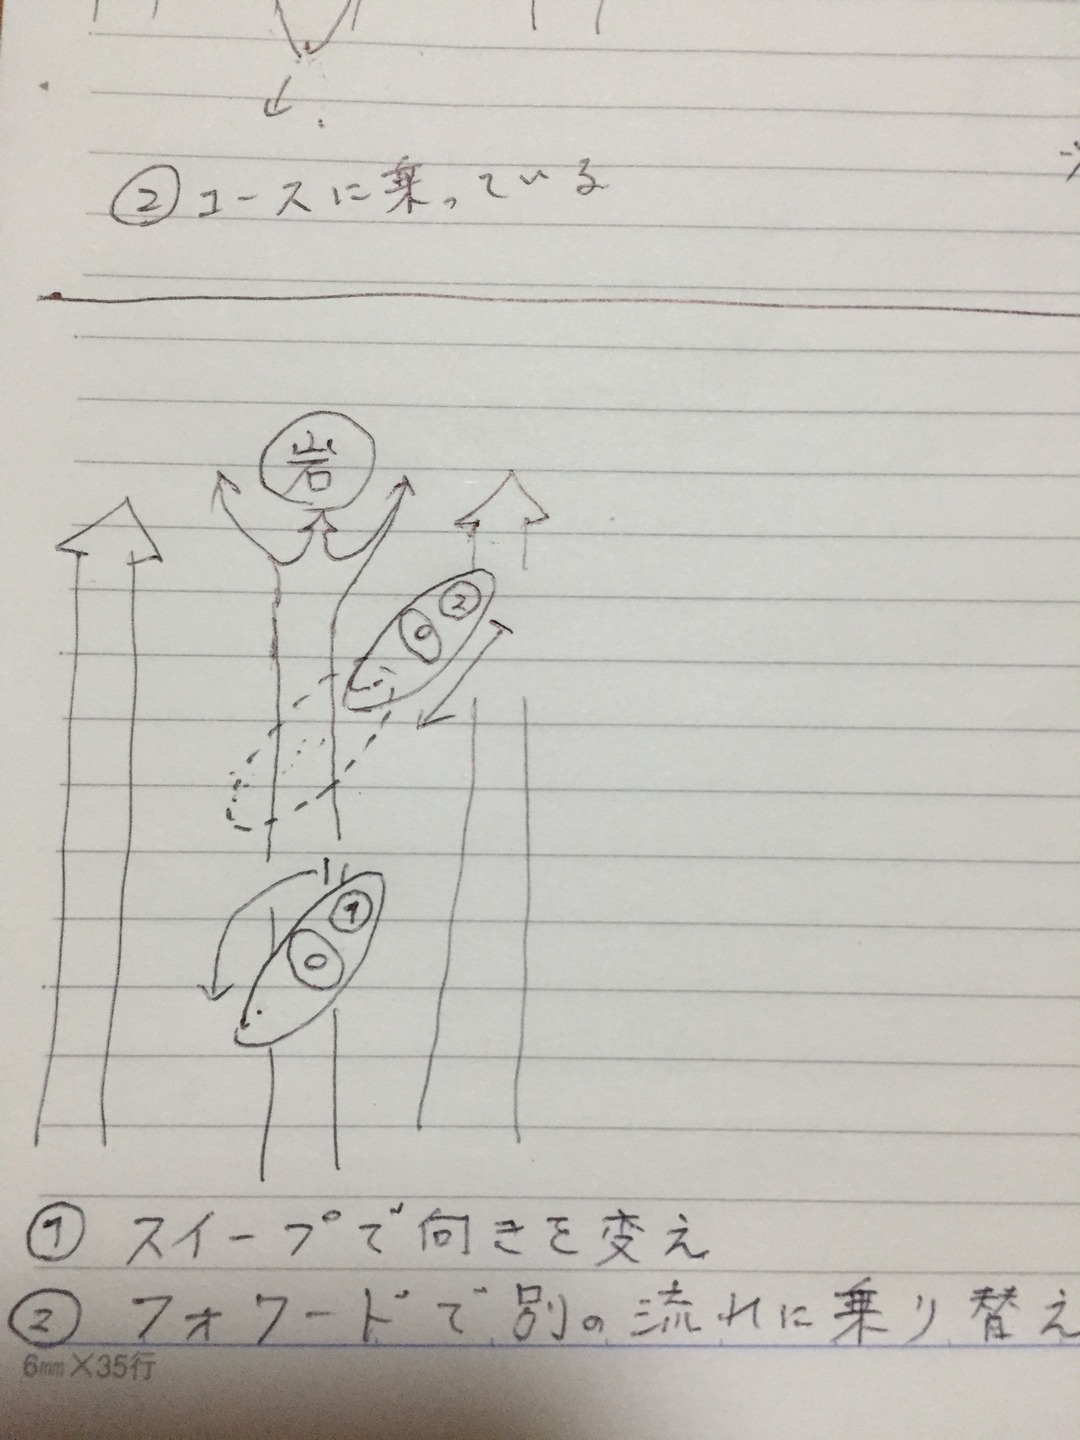 ②コースに乗っている
岩
②
①
① スイープで向きを変え
② フォワードで別の流れに乗り替え
6mm×35行